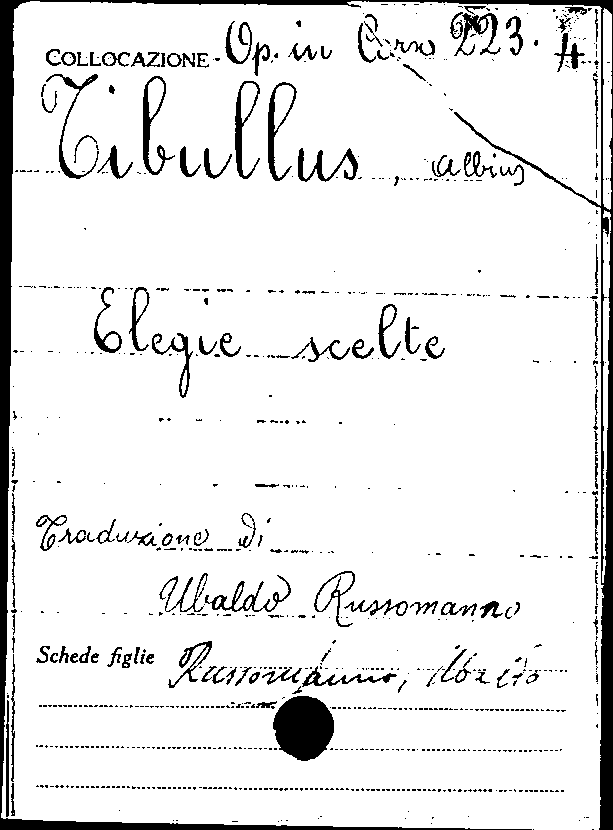 COLLOCAZIONE - Op. in Corso 223. 4
Tibullus, Albius
Elegie scelte
Traduzione di
Ubaldo Russomanno
Schede figlie Russomanno,